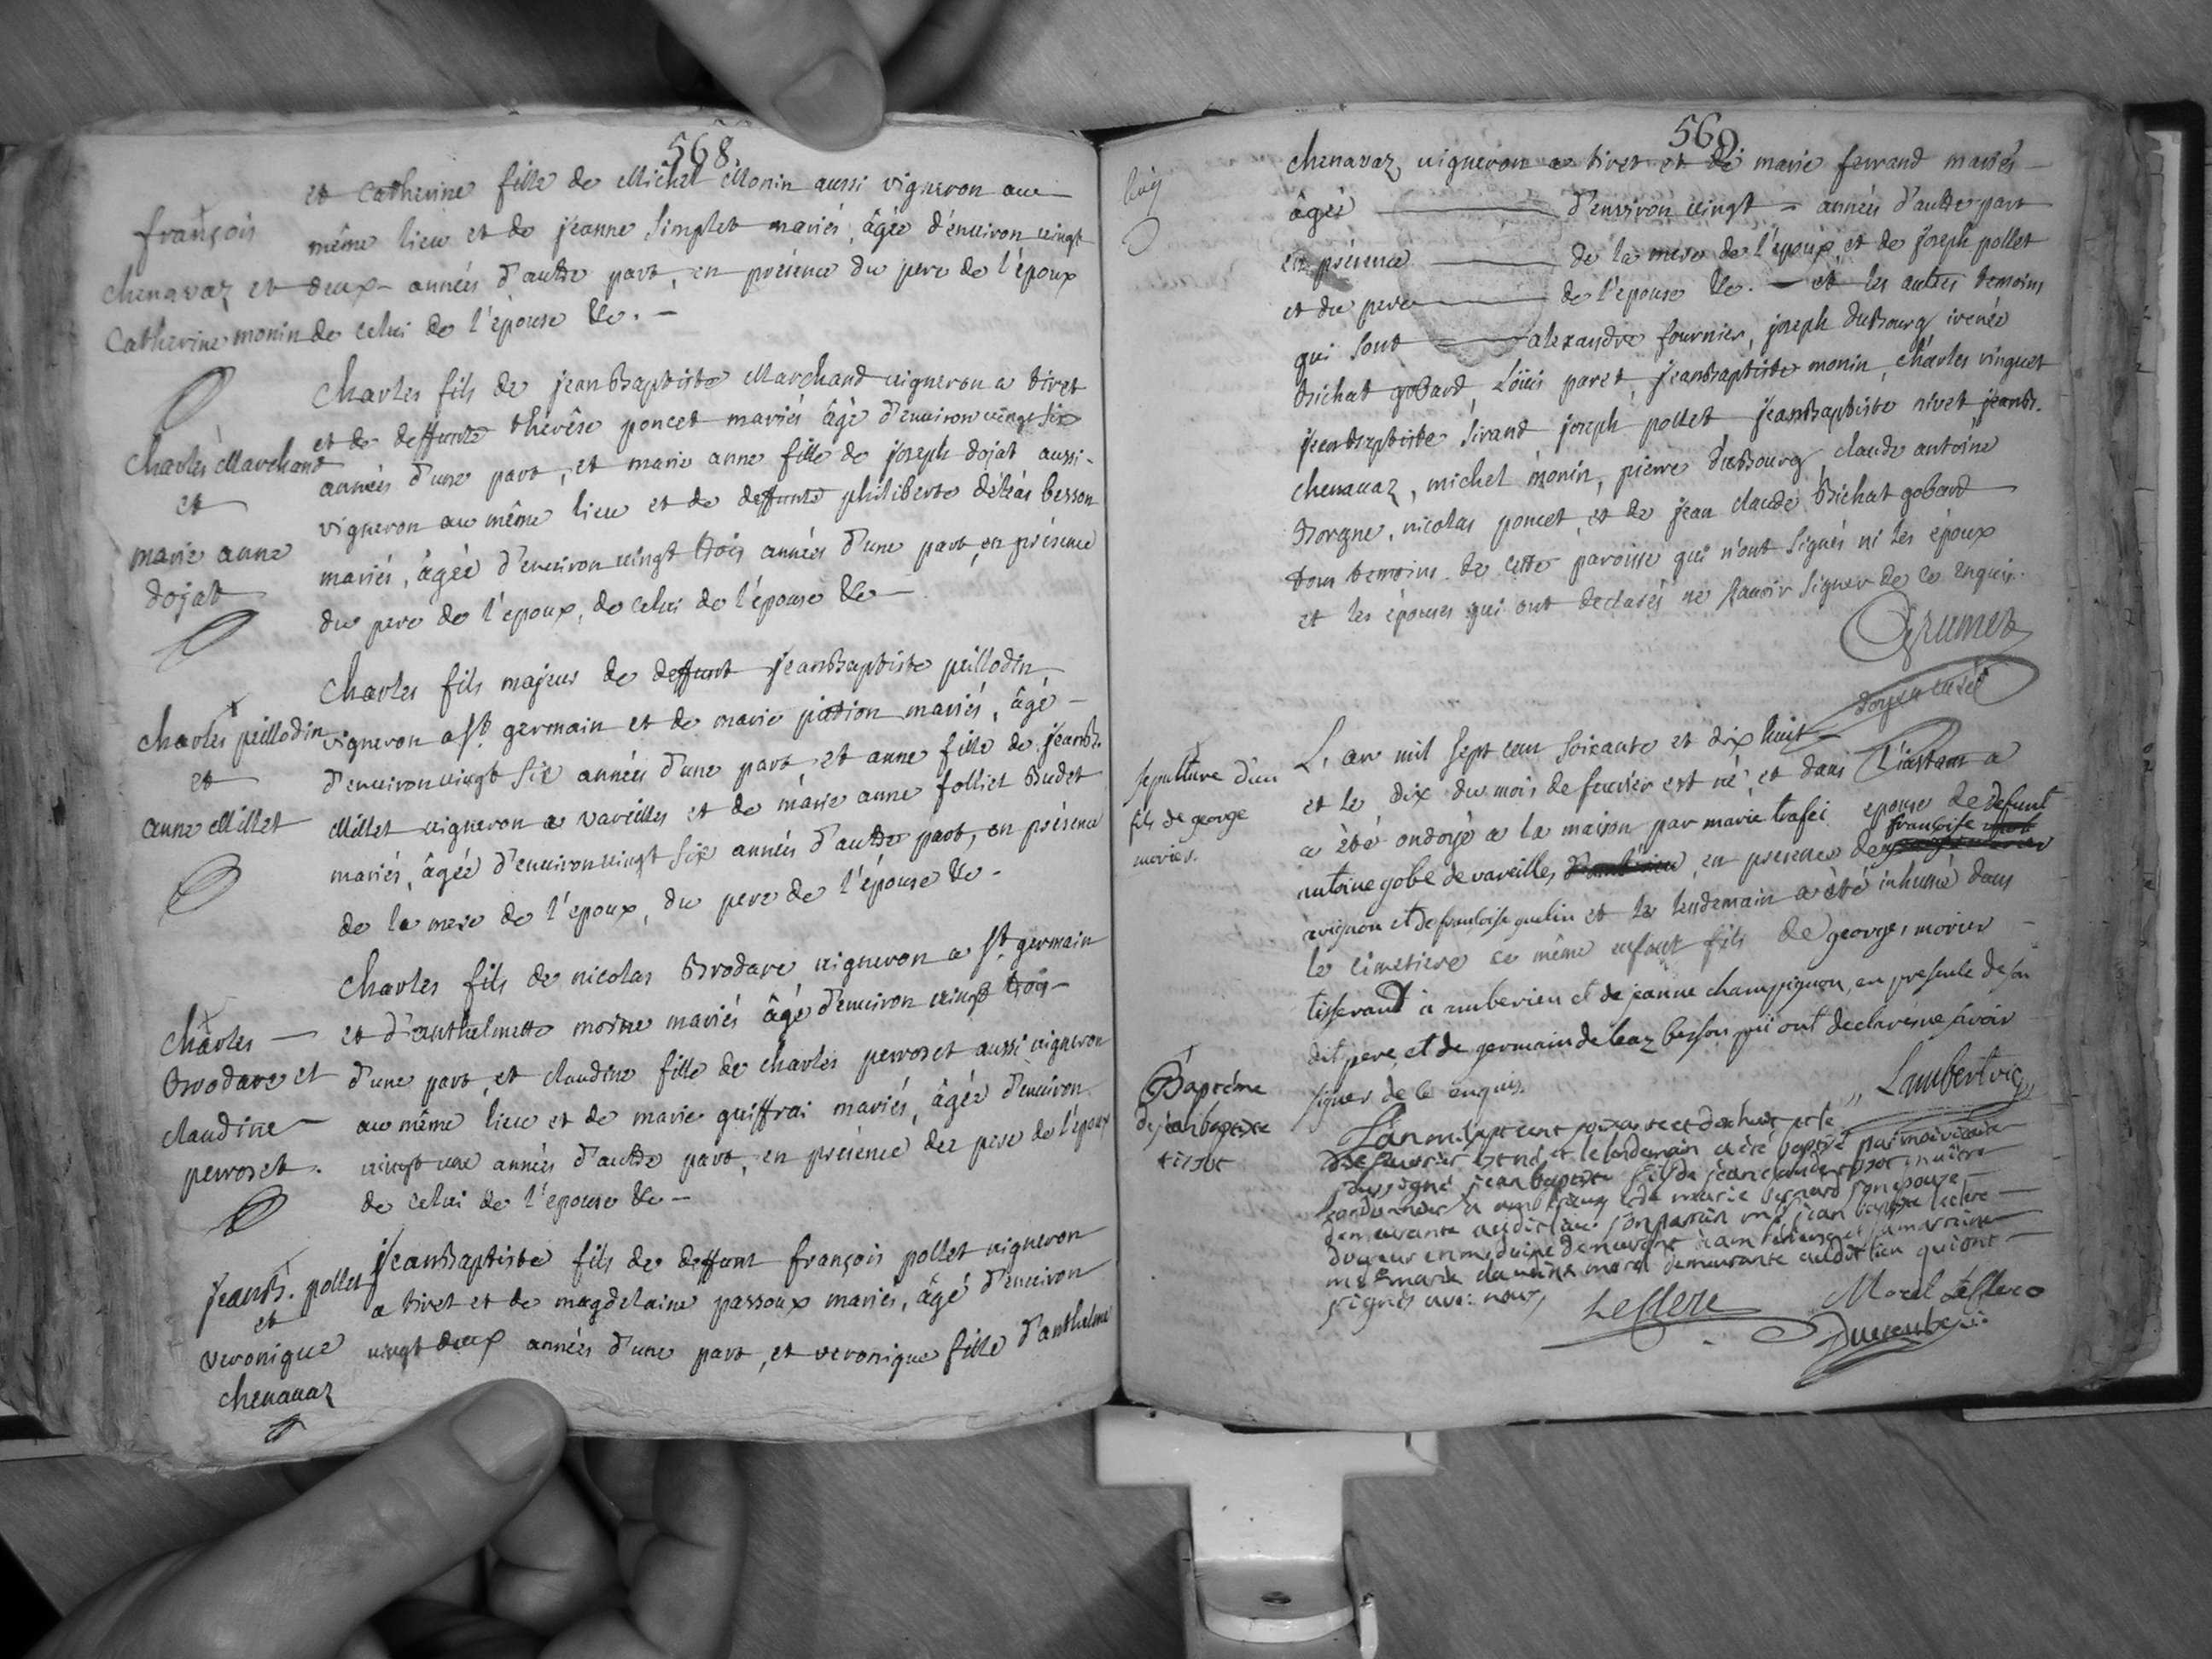 568
et Catherine fille de Michel Monin aussi vigneron au
françois
même lieu et de jeanne Simplet mariés, âgée d'environ vingt
chenavaz et
deux années d'autre part, en présence du pere de l'époux
Catherine monin
de celui de l'épouse &c. —
Charles fils de jean Baptiste Marchand vigneron a tiret
et de deffunte thérèse poncet mariés âgé d'environ vingt six
Charles Marchand
années d'une part, et marie anne fille de joseph dojat aussi
et
vigneron au même lieu et de deffunte philiberte déléas besson
marie anne
mariés, âgée d'environ vingt trois années d'une part, en présence
dojat
du pere de l'époux, de celui de l'épouse &c —
Charles fils majeur de deffunt jeanBaptiste peillodin
charles peillodin
vigneron a St. germain et de marie pation mariés, âgé —
et
d'environ vingt six années d'une part, et anne fille de jeanB.
anne Millet
Millet vigneron a vareilles et de marie anne folliet Budet
mariés, âgée d'environ vingt six années d'autre part, en présence
de la mere de l'epoux, du pere de l'épouse &c -
Charles fils de nicolas Brodare vigneron a St. germain
Charles —
et d'anthelmette moine mariés âgé d'environ vingt trois —
Brodare et
d'une part, et claudine fille de charles perroset aussi vigneron
claudine —
au même lieu et de marie guiffrai mariés, âgée d'environ
perroset.
vingt une années d'autre part, en présence des pere de l'époux
de celui de l'epouse &c —
jeanB. pollet
jeanBaptiste fils de deffunt françois pollet vigneron
et
a tiret et de magdelaine passoux mariés, âgé d'environ
veronique
vingt deux années d'une part, et veronique fille d'anthelme
chenavaz
569
chenavaz vigneron a tiret et de marie ferrand mariés —
âgée — d'environ vingt — années d'autre part
en présence — de la mere de l'époux, et de joseph pollet
et du pere — de l'epouse &c. — et les autres temoins
qui sont — alexandre fournier, joseph duBourg, irenée
Bichat gobard, Loüis paret, jeanBaptiste monin, charles vinguet
jeanBaptiste Sirand joseph pollet jeanBaptiste nivet jeanB.
chenavaz, michel monin, pierre duBourg claude antoine
Borgne, nicolas poncet, et de jean claude Bichat gobard
tous temoins de cette paroisse qui n'ont signés ni les époux
et les épouses qui ont declarés ne scavoir signer de ce enquis.
Grumet
doyen curé
L'an mil sept cent soixante et dix huit
sepulture d'un
et le dix du mois de fevrier est né, et dans l'instant a
fils de george
a été ondoyé a la maison par marie trafei epouse de defunt
morier.
antoine gobe de vareilles, en presence de françoise
avignon et de francoise guelin et le lendemain a été inhumé dans
le cimetiere ce même enfant fils de george, morier —
tisserand à amberieu et de jeanne champignon, en presence deson
dit pere, et de germain deleaz besson qui ont declares ne savoir
signer de ce enquis.
Lambert vic,
Baptême
de jean baptiste
tissot
L'an mil sept cent soixante et dix huit et le
dix fevrier est né et le lendemain a été baptisé par moi vicaire
soussigné jean baptiste fils de jean claude tissot maitre
cordonnier a amberieux et de marie bernard son epouse —
demeurante audit lieu. son parrain mre jean baptiste leclerc —
docteur en medecine demeurant a amberieux et sa marraine
mlle marie claudine morel demeurante audit lieu qui ont —
signés avec nous,
LeClerc
Morel LeClerc